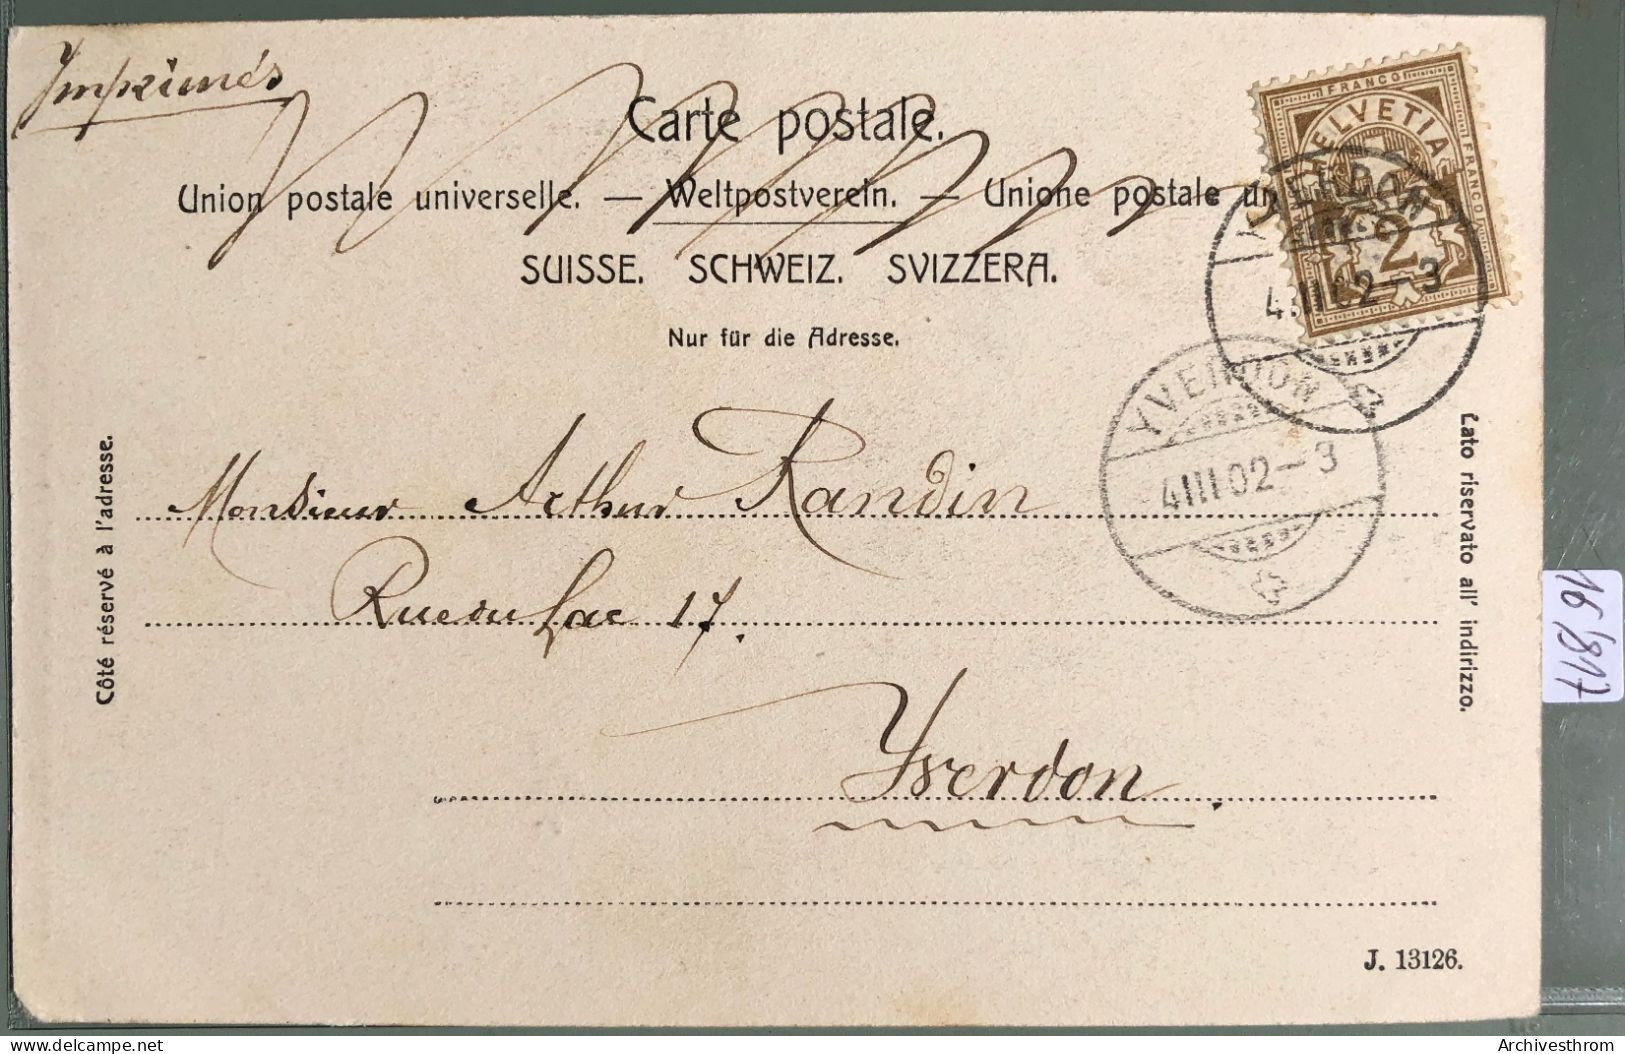 Imprimés
Carte postale.
Union postale universelle. — Weltpostverein. — Unione postale un
SUISSE. SCHWEIZ. SVIZZERA.
Nur für die Adresse.
FRANCO
HELVETIA
FRANCO
2
YVERDON
4.III.02-3
YVERDON
4III02-3
Côté réservé à l'adresse.
Lato riservato all' indirizzo.
Monsieur Arthur Randin
Rue du Lac 17.
Yverdon.
J. 13126.
16/817
www.delcampe.net
Archivesthrom